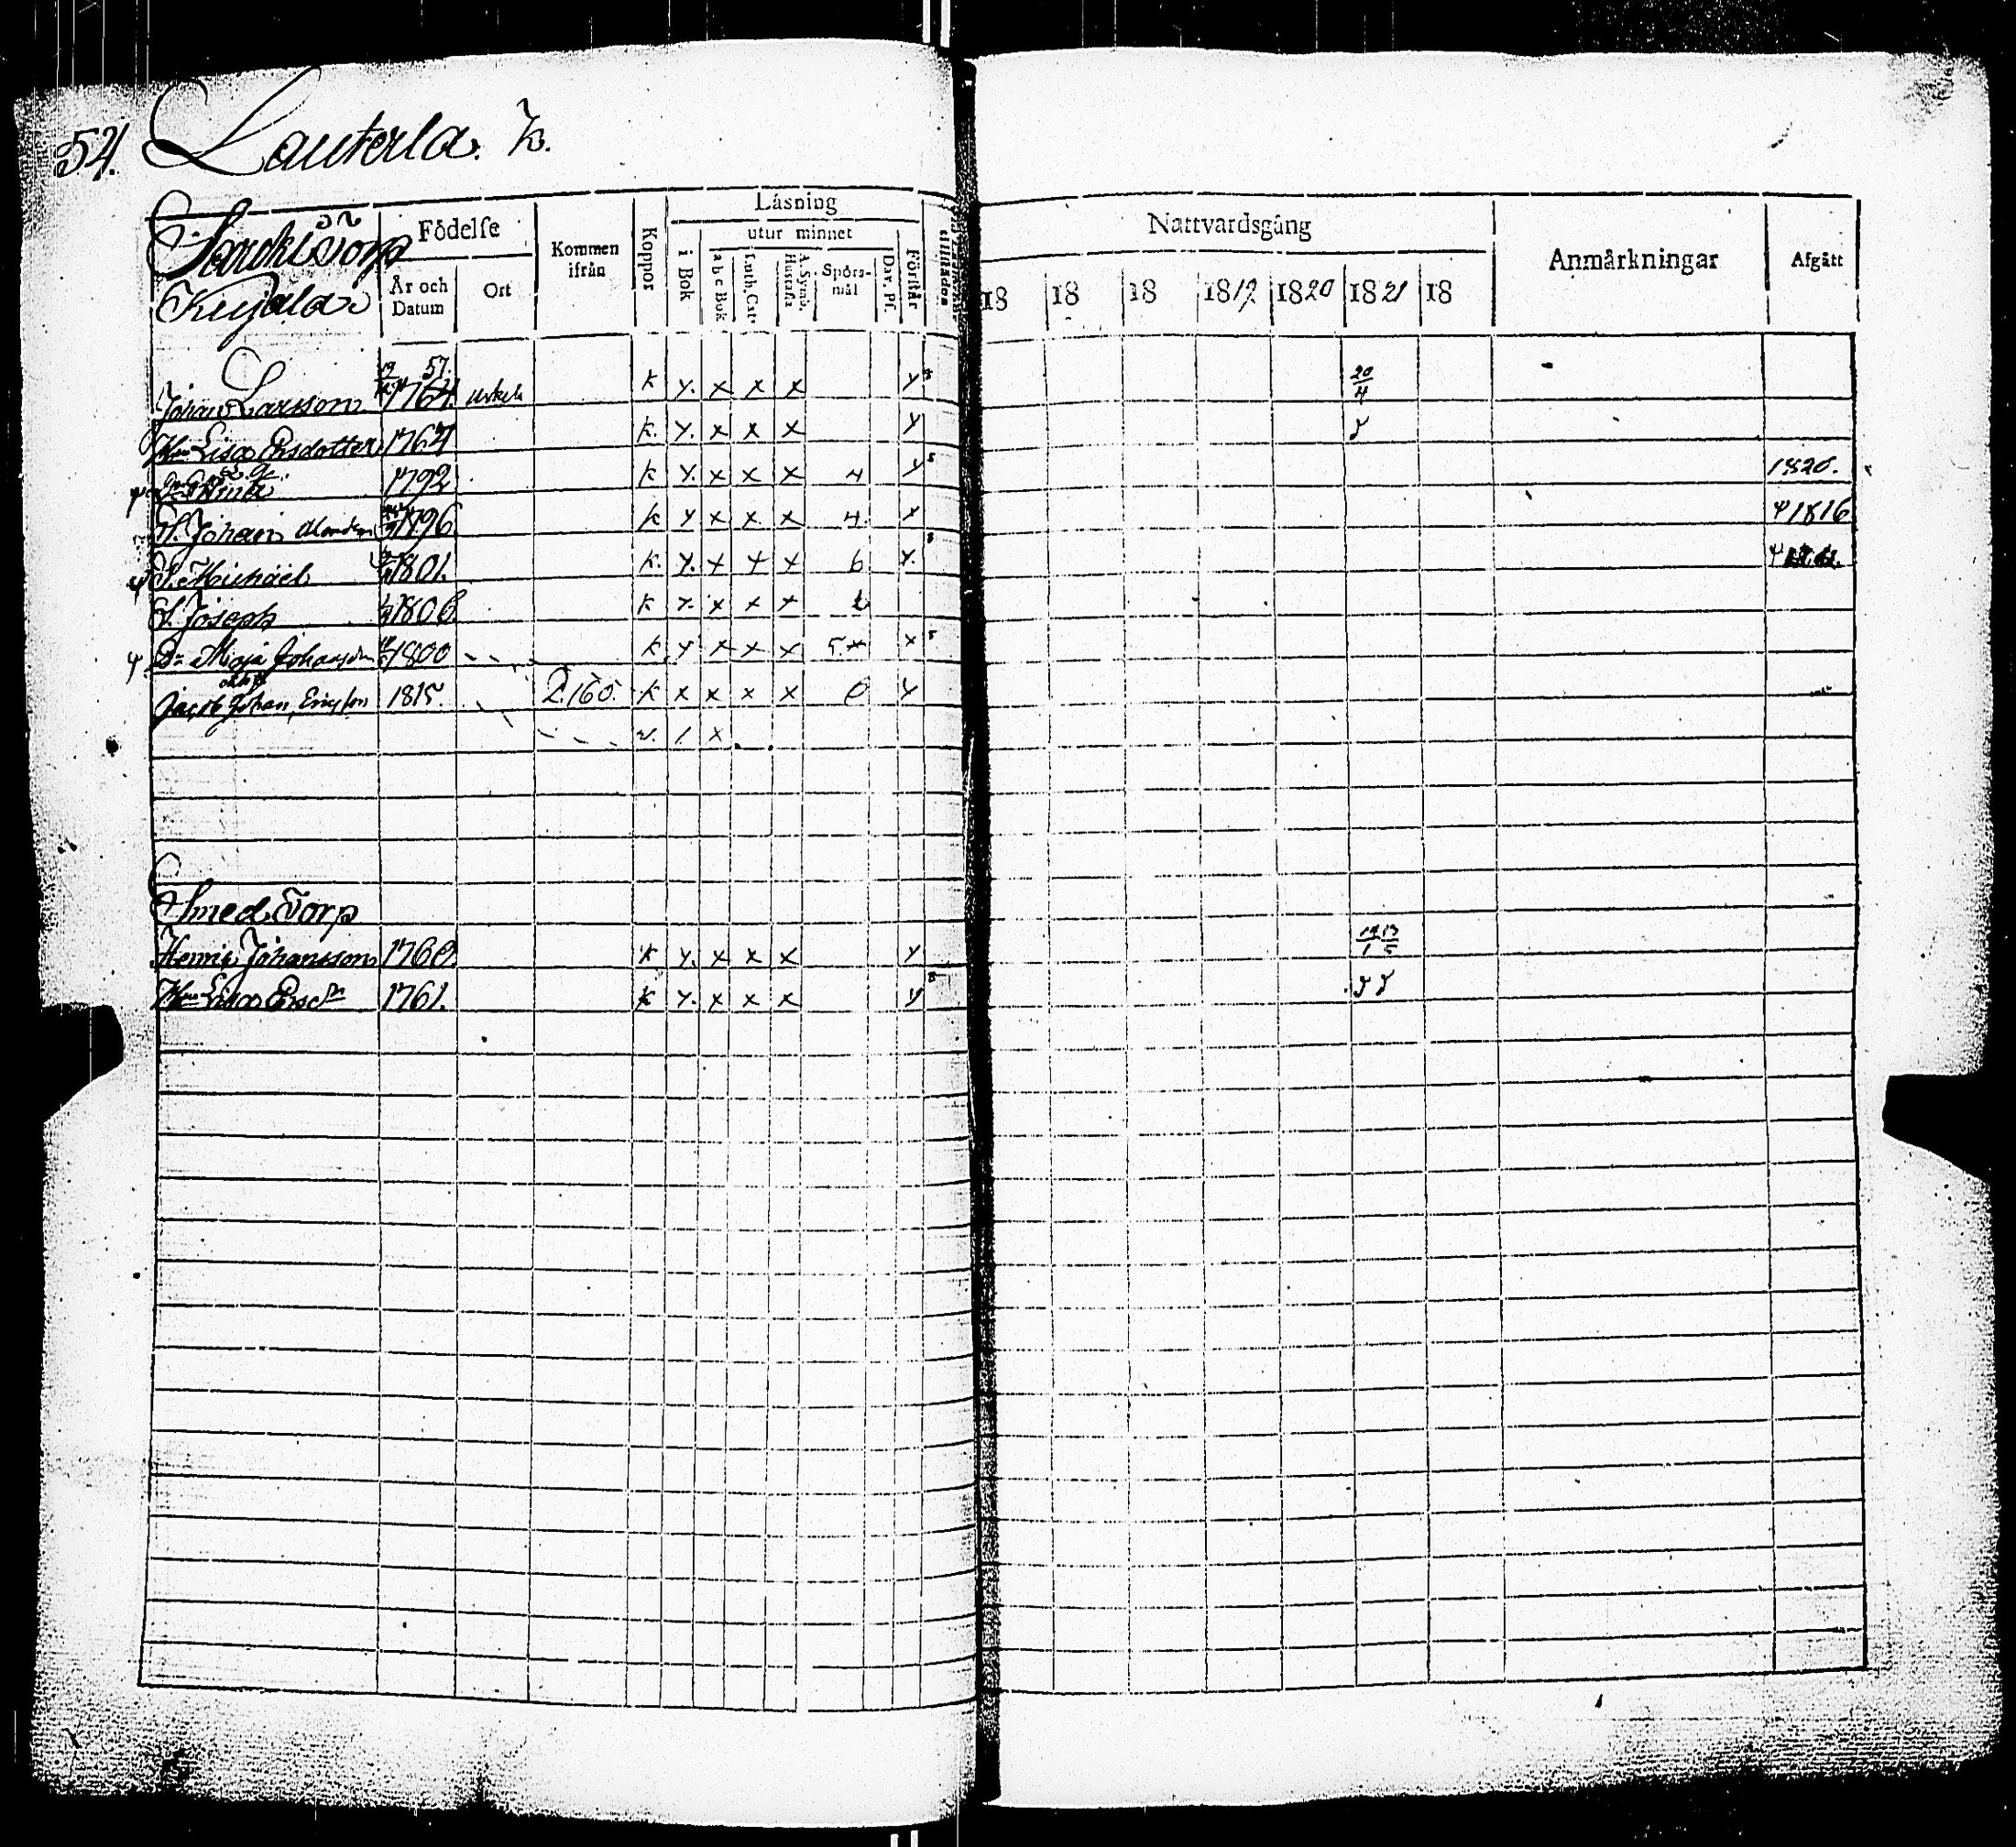 54. Lauterla. B.
Särki Torp
Kujala
Födelse
År och Datum
Ort
Kommen ifrån
Koppor
Läsning
i Bok
utur minnet
a b c Bok
Luth. Cat.
A. Symb. Hustafla
Spörsmål
Dav. Ps.
Förstår
Nattvardsgång
18 18 18 1819 1820 1821 18
Anmärkningar
Afgått
Johan Larsson 19 57. 1764. k y. x x x y 20/4
Hu Lisa Ersdotter 1764 k. y. x x x y
1792 k y. x x x 4 y 1820.
S. Johan 1796. k y x x x 4. x 1816
S. Michael 1801. k. y. x x x 6 y.
S. Joseph 1806. k y. x x x
Dr Maja 1800 k y x x x 5 x
Jacob Johan Ericsson 1815. 2.165. k x x x x 0 y
v. 1 x
Smed Torp
Henric Johansson 1760. k y. x x x y 14/1 13/5
Hu Lisa Ersdr 1761. k y. x x x y